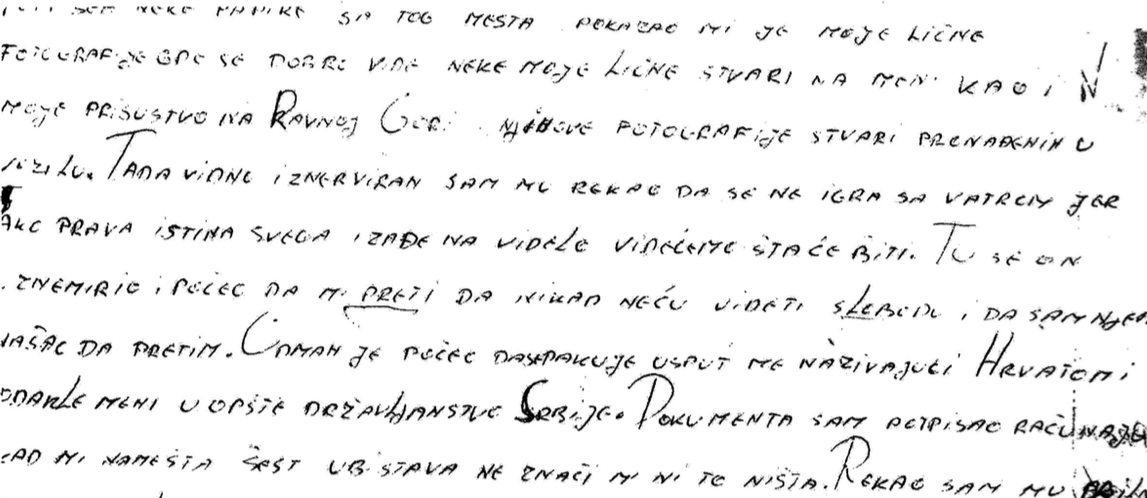 SAM NEKE PAPIRE SA TOG MESTA POKAZAO MI JE MOJE LIČNE
FOTOGRAFIJE GDE SE DOBRO VIDE NEKE MOJE LIČNE STVARI NA MENI KAO I
MOJE PRISUSTVO NA RAVNOJ GORI NJIHOVE FOTOGRAFIJE STVARI PRONAĐENIH U
VOZILU. TADA VIDNO IZNERVIRAN SAM MU REKAO DA SE NE IGRA SA VATROM JER
AKO PRAVA ISTINA SVEGA IZAĐE NA VIDELO VIDEĆEMO ŠTA ĆE BITI. TU SE ON
ZNEMIRIO I POČEO DA MI PRETI DA NIKAD NEĆU VIDETI SLOBODU I DA SAM
NAŠAO DA PRETIM. ODMAH JE POČEO DA SE PAKUJE USPUT ME NAZIVAJUĆI HRVATOM I
ODAKLE MENI UOPŠTE DRŽAVLJANSTVO SRBIJE. DOKUMENTA SAM POTPISAO
MI NAMEŠTA ŠEST UBISTAVA NE ZNAČI MI NI TO NIŠTA. REKAO SAM MU